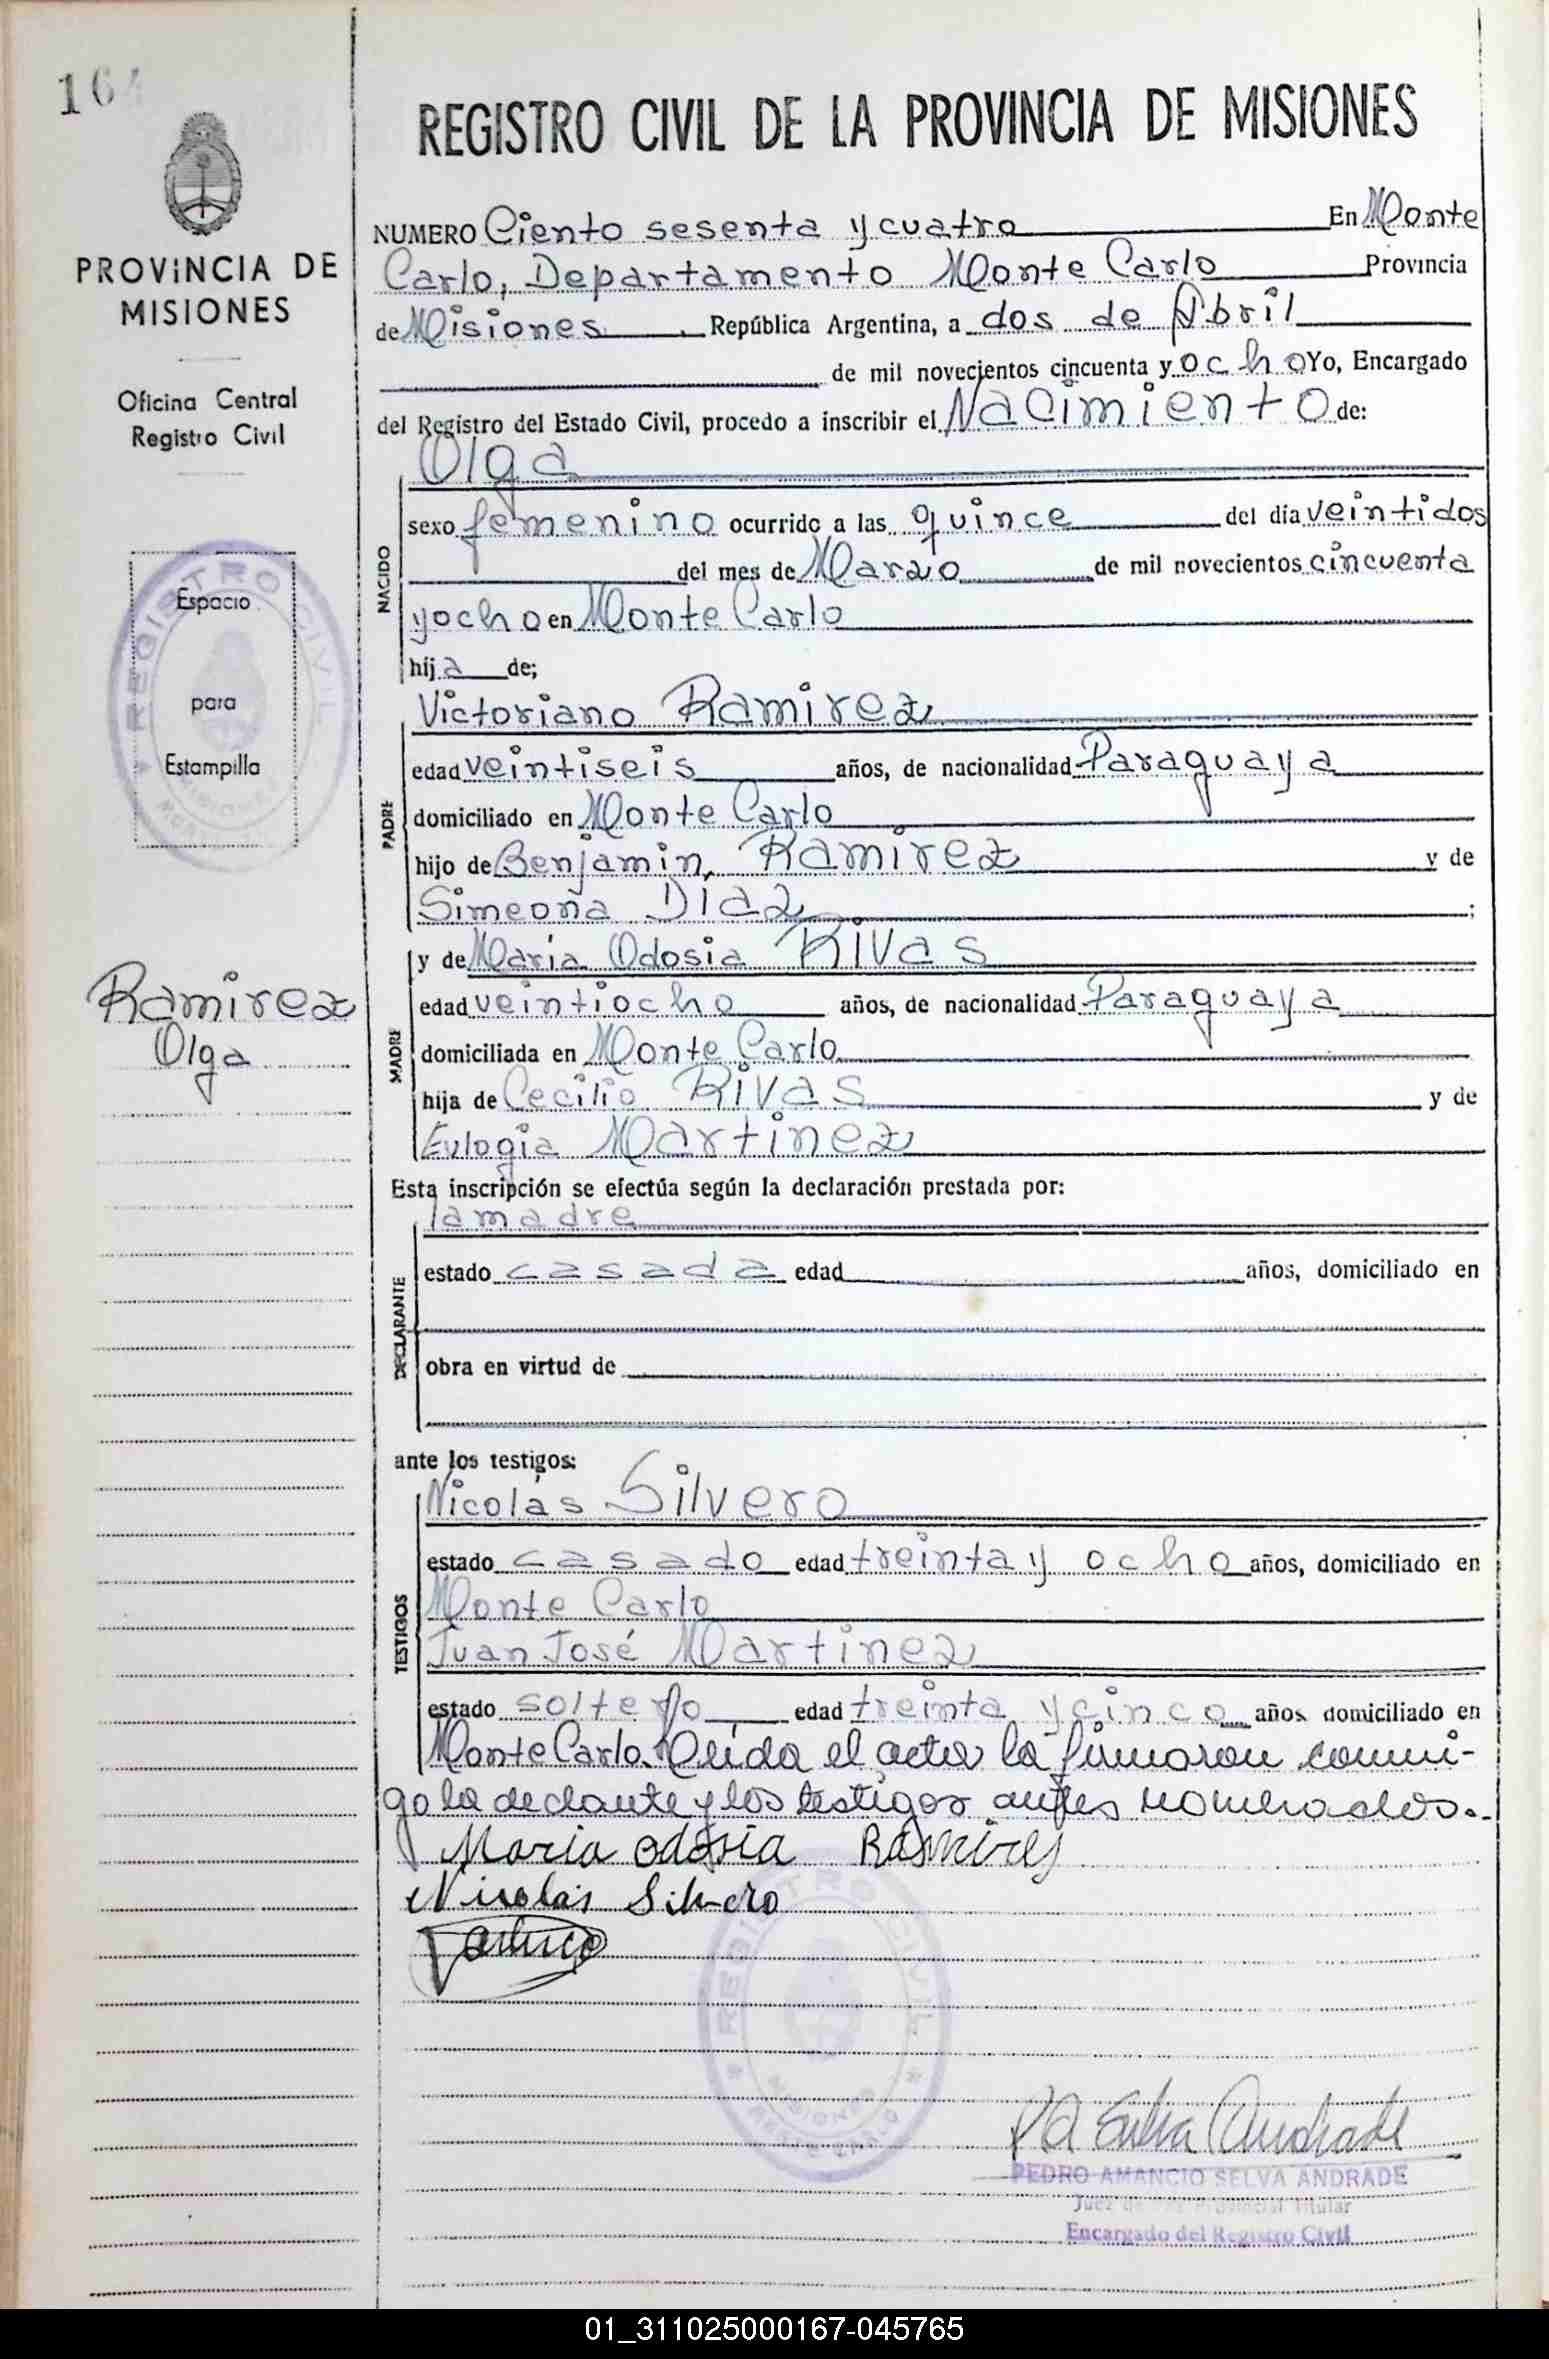 164
PROVINCIA DE
MISIONES
Oficina Central
Registro Civil
Espacio
para
Estampilla
REGISTRO CIVIL
MISIONES
Ramirez
Olga
REGISTRO CIVIL DE LA PROVINCIA DE MISIONES
NUMERO Ciento sesenta y cuatro En Monte
Carlo, Departamento Monte Carlo Provincia
de Misiones. República Argentina, a dos de Abril
de mil novecientos cincuenta y ocho Yo, Encargado
del Registro del Estado Civil, procedo a inscribir el Nacimiento de:
Olga
NACIDO
sexo femenino ocurrido a las quince del día veintidos
del mes de Marzo de mil novecientos cincuenta
y ocho en Monte Carlo
hija de;
Victoriano Ramirez
PADRE
edad veintiseis años, de nacionalidad Paraguaya
domiciliado en Monte Carlo
hijo de Benjamin, Ramirez y de
Simeona Diaz ;
y de Maria Odosia Rivas
MADRE
edad veintiocho años, de nacionalidad Paraguaya
domiciliada en Monte Carlo
hija de Cecilio Rivas y de
Eulogia Martinez
Esta inscripción se efectúa según la declaración prestada por:
la madre
DECLARANTE
estado casada edad años, domiciliado en
obra en virtud de
ante los testigos:
Nicolás Silvero
TESTIGOS
estado casado edad treinta y ocho años, domiciliado en
Monte Carlo
Juan José Martinez
estado soltero edad treinta y cinco años domiciliado en
Monte Carlo. Leída el acta la firmaron conmi-
go la declante y los testigos antes nombrados.
Maria odosia Ramires
Nicolás Silvero
REGISTRO CIVIL
MISIONES
MONTE CARLO
P A Selva Andrade
PEDRO AMANCIO SELVA ANDRADE
Juez de Paz Provincial Titular
Encargado del Registro Civil
01_311025000167-045765